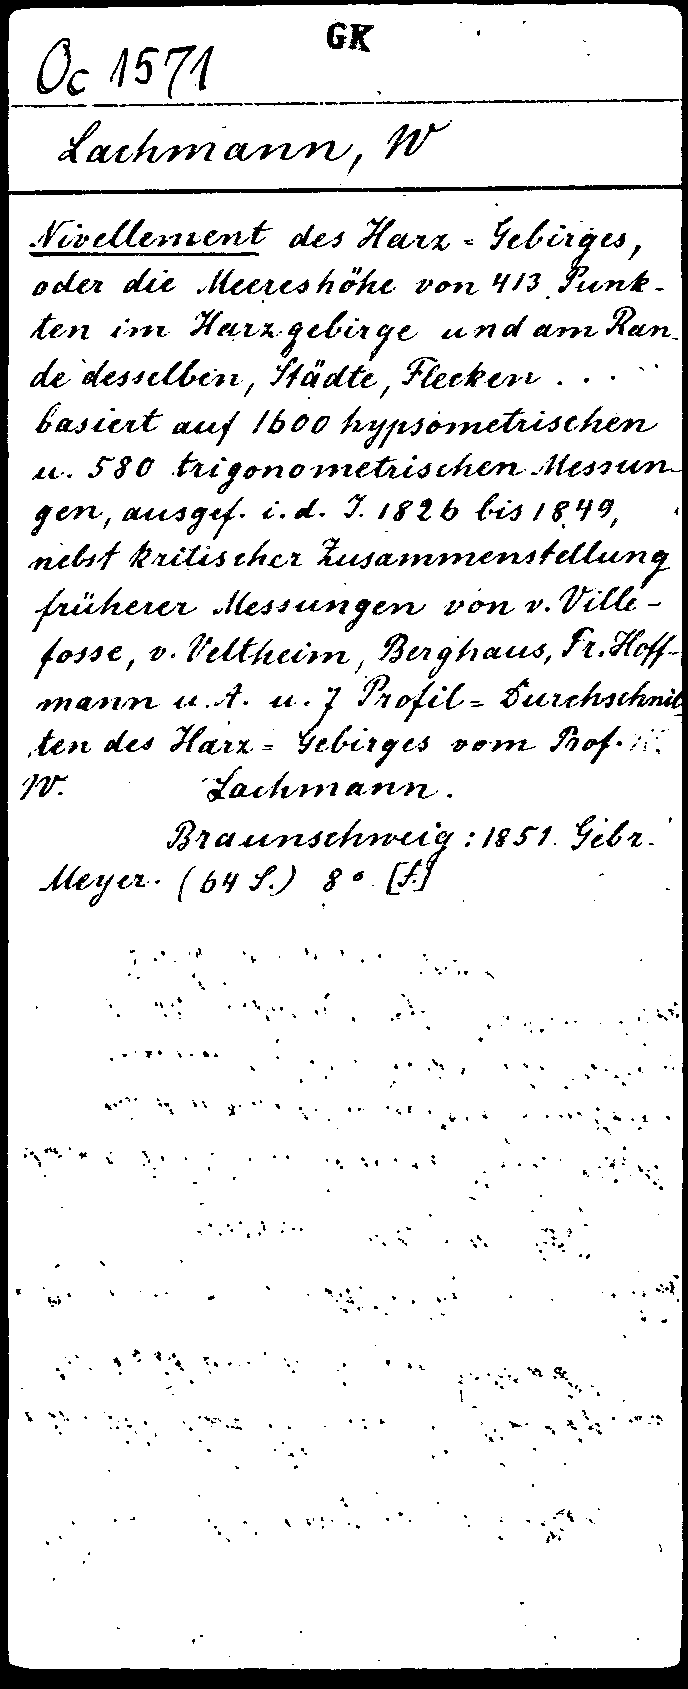 GK
Oc 1571
Lachmann, W
Nivellement des Harz=Gebirges,
oder die Meereshöhe von 413 Punk-
ten im Harzgebirge und am Ran-
de desselben, Städte, Flecken . . .
basiert auf 1600 hypsometrischen
u. 580 trigonometrischen Messun-
gen, ausgef. i. d. J. 1826 bis 1849,
nebst kritischer Zusammenstellung
früherer Messungen von v. Ville-
fosse, v. Veltheim, Berghaus, Fr. Hoff-
mann u. A. u. 7 Profil=Durchschnit-
ten des Harz=Gebirges vom Prof.
W. Lachmann.
Braunschweig: 1851. Gebr.
Meyer. (64 S.) 8° [f.]